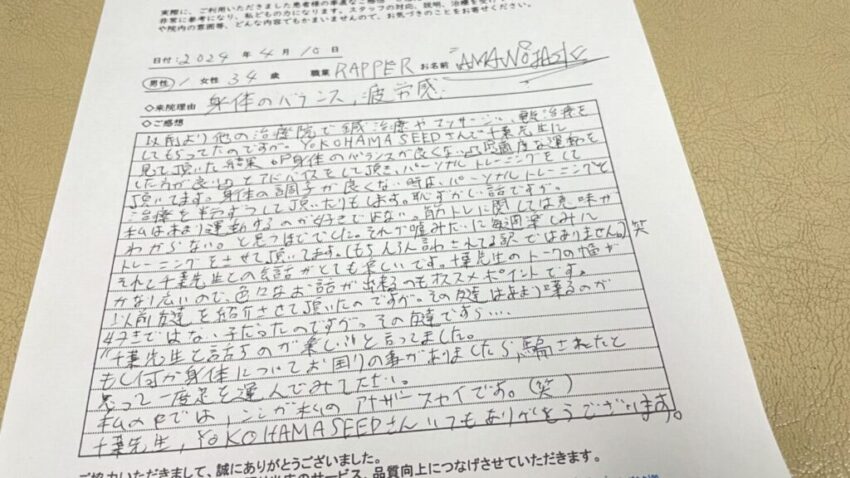 実際に、ご利用いただきました患者様の率直なご感想
非常に参考になり、私どもの力になります。スタッフの対応、説明、治療
や院内の雰囲気等、どんな内容でもかまいませんので、お気づきのことをお寄せください。
日付:2024年4月10日
男性/女性 34歳 職業 RAPPER お名前 AMANOJACK
◇来院理由 身体のバランス、疲労感
◇ご感想
以前より他の治療院で鍼治療やマッサージ、電気治療を
してもらってたのですが。YOKOHAMA SEEDさんで千葉先生に
見て頂いた結果 身体のバランスが良くない 適度な運動を
した方が良いとアドバイスをして頂き、パーソナルトレーニングをして
頂いてます。身体の調子が良くない時は、パーソナルトレーニングと
治療を半分ずつして頂いたりもします。恥ずかしい話ですが。
私はあまり運動するのが好きではない。筋トレに関しては意味が
わからない。と思うほどでした。それが嘘みたいに毎週楽しみに
トレーニングをさせて頂いてます。(もちろん言わされてる訳ではありません。)笑
それと千葉先生との会話がとても楽しいです。千葉先生のトークの幅が
かなり広いので、色々なお話が出来るのもオススメポイントです。
以前友達を紹介させて頂いたのですが。その友達はあまり喋るのが
好きではない子だったのですが。その友達ですら....
"千葉先生と話すのが楽しい"と言ってました。
もし何か身体についてお困りの事がありましたら、騙されたと
思って一度足を運んでみて下さい。
私の中では、ここが私のアナザースカイです。(笑)
千葉先生、YOKOHAMA SEEDさんいつもありがとうございます。
ご協力いただきまして、誠にありがとうございました。
サービス、品質向上につなげさせていただきます。